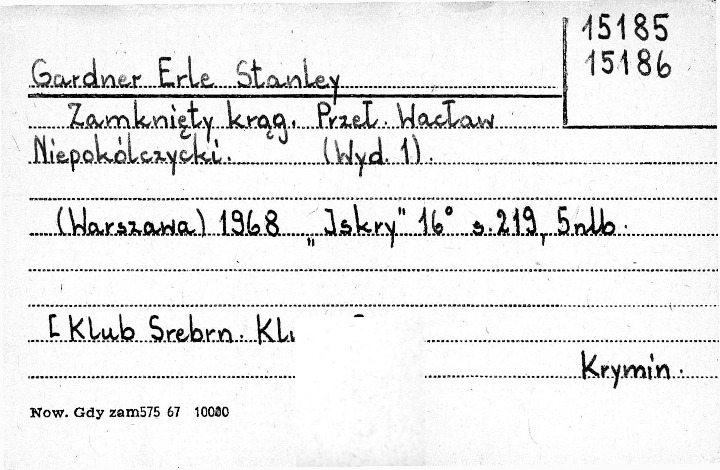 15185
15186
Gardner Erle Stanley
Zamknięty krąg. Przeł. Wacław
Niepokólczycki. (Wyd. 1).
(Warszawa) 1968 „Iskry" 16° s. 219, 5 nlb.
[Klub Srebrn.
Krymin.
Now. Gdy zam575 67 10000